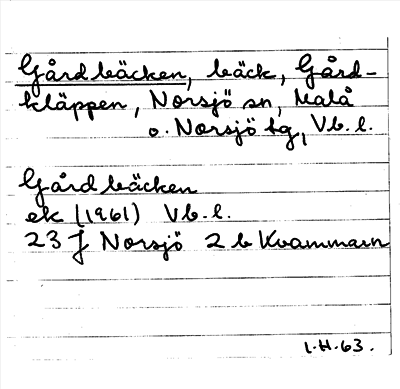 Gårdbäcken, bäck, Gård-
kläppen, Norsjö sn, Malå
o. Norsjö tg, Vb. l.
Gårdbäcken
ek (1961) Vb. l.
23 J Norsjö 2 b Kvammarn
I.H.63.